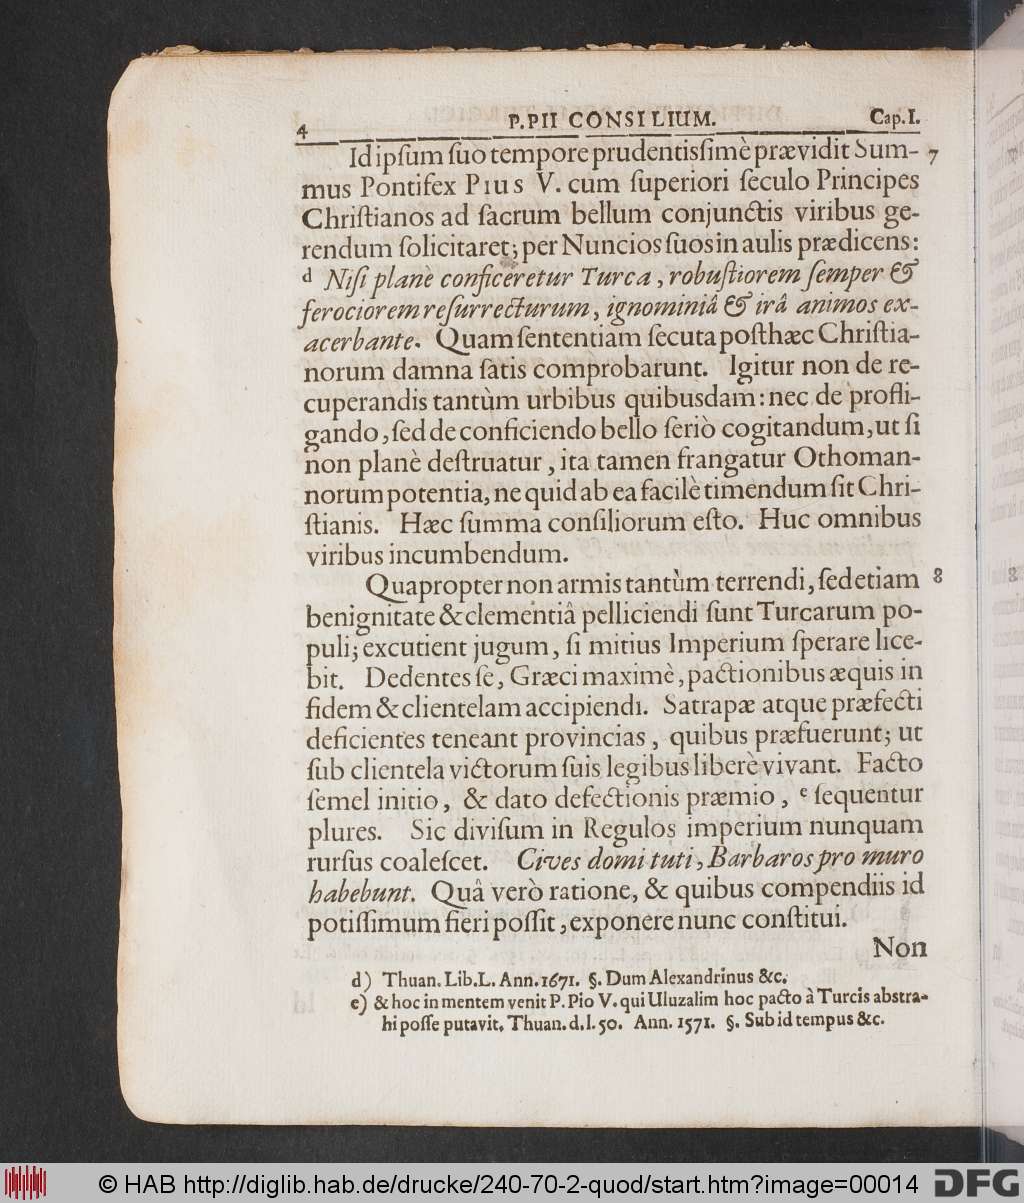 4 P. PII CONSILIUM. Cap. I.
Id ipſum ſuo tempore prudentiſſimè prævidit Sum- 7
mus Pontifex Pius V. cum ſuperiori ſeculo Principes
Chriſtianos ad ſacrum bellum conjunctis viribus ge-
rendum ſolicitaret; per Nuncios ſuos in aulis prædicens:
d Niſi planè conficeretur Turca, robuſtiorem ſemper &
ferociorem reſurrecturum, ignominiâ & irâ animos ex-
acerbante. Quam ſententiam ſecuta poſthæc Chriſtia-
norum damna ſatis comprobarunt. Igitur non de re-
cuperandis tantùm urbibus quibusdam: nec de profli-
gando, ſed de conficiendo bello ſeriò cogitandum, ut ſi
non planè deſtruatur, ita tamen frangatur Othoman-
norum potentia, ne quid ab ea facilè timendum ſit Chri-
ſtianis. Hæc ſumma conſiliorum eſto. Huc omnibus
viribus incumbendum.
Quapropter non armis tantùm terrendi, ſed etiam 8
benignitate & clementiâ pelliciendi ſunt Turcarum po-
puli; excutient jugum, ſi mitius Imperium ſperare lice-
bit. Dedentes ſe, Græci maximè, pactionibus æquis in
fidem & clientelam accipiendi. Satrapæ atque præfecti
deficientes teneant provincias, quibus præfuerunt; ut
ſub clientela victorum ſuis legibus liberè vivant. Facto
ſemel initio, & dato defectionis præmio, e ſequentur
plures. Sic diviſum in Regulos imperium nunquam
rurſus coaleſcet. Cives domi tuti, Barbaros pro muro
habebunt. Quâ verò ratione, & quibus compendiis id
potiſſimum fieri poſſit, exponere nunc conſtitui.
Non
d) Thuan. Lib. L. Ann. 1671. §. Dum Alexandrinus &c.
e) & hoc in mentem venit P. Pio V. qui Uluzalim hoc pacto à Turcis abstra-
hi poſſe putavit. Thuan. d. l. 50. Ann. 1571. §. Sub id tempus &c.
© HAB http://diglib.hab.de/drucke/240-70-2-quod/start.htm?image=00014
DFG